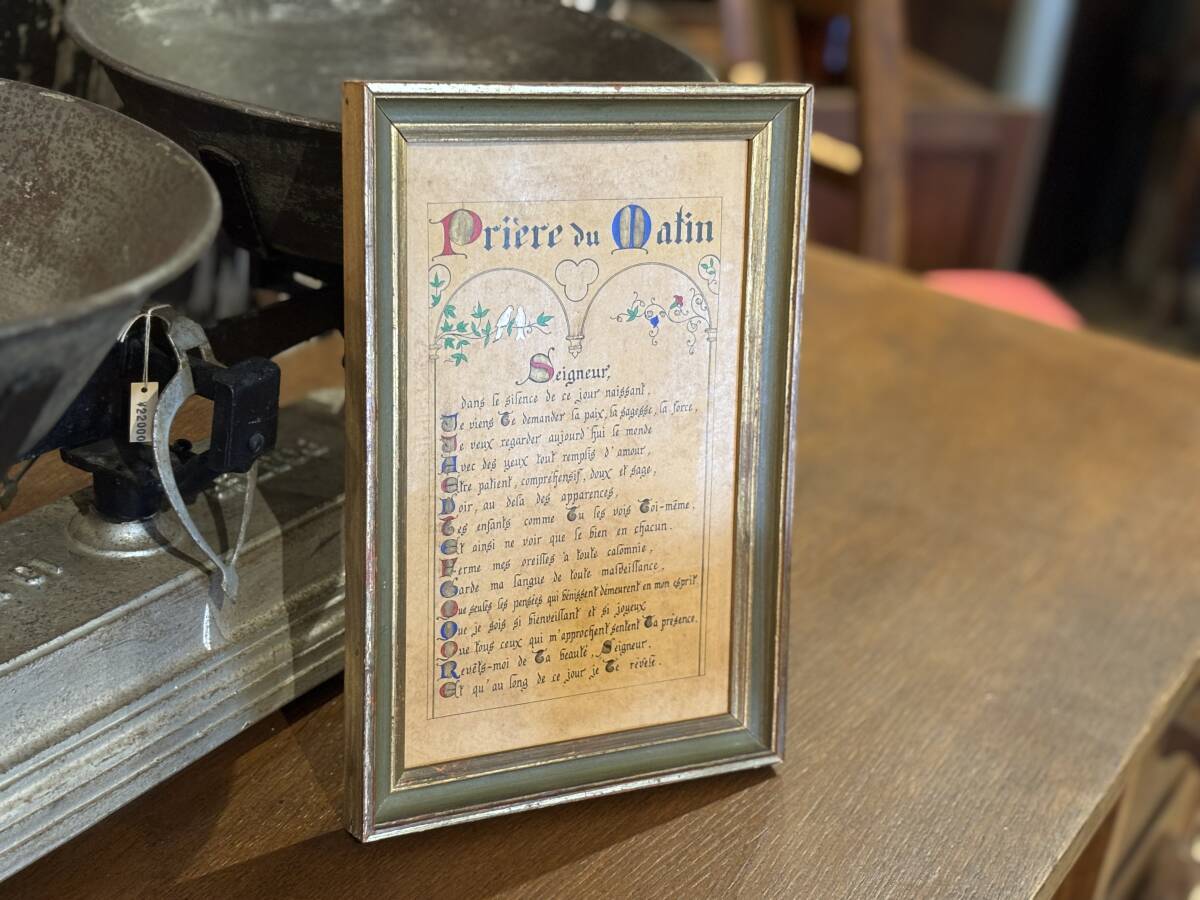 Prière du Matin
Seigneur,
dans le silence de ce jour naissant,
Je viens Te demander la paix, la sagesse, la force,
Je veux regarder aujourd'hui le monde
Avec des yeux tout remplis d'amour,
Etre patient, compréhensif, doux et sage,
Voir, au delà des apparences,
Tes enfants comme Tu les vois Toi-même,
Et ainsi ne voir que le bien en chacun.
Ferme mes oreilles à toute calomnie,
Garde ma langue de toute malveillance,
Que seules les pensées qui bénissent demeurent en mon esprit
Que je sois si bienveillant et si joyeux
Que tous ceux qui m'approchent sentent Ta présence.
Revêts-moi de Ta beauté, Seigneur,
Et qu'au long de ce jour je Te révèle.
¥22000